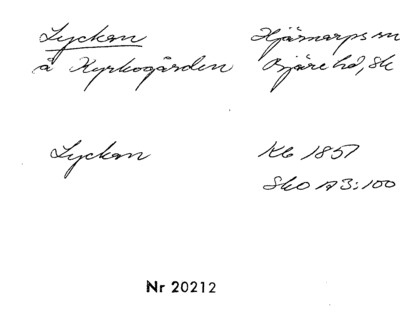 Lyckan Hjärnarps sn
å Kyrkogården Bjäre hd, Sk
Lyckan Kb 1857
Sko A3:100
Nr 20212